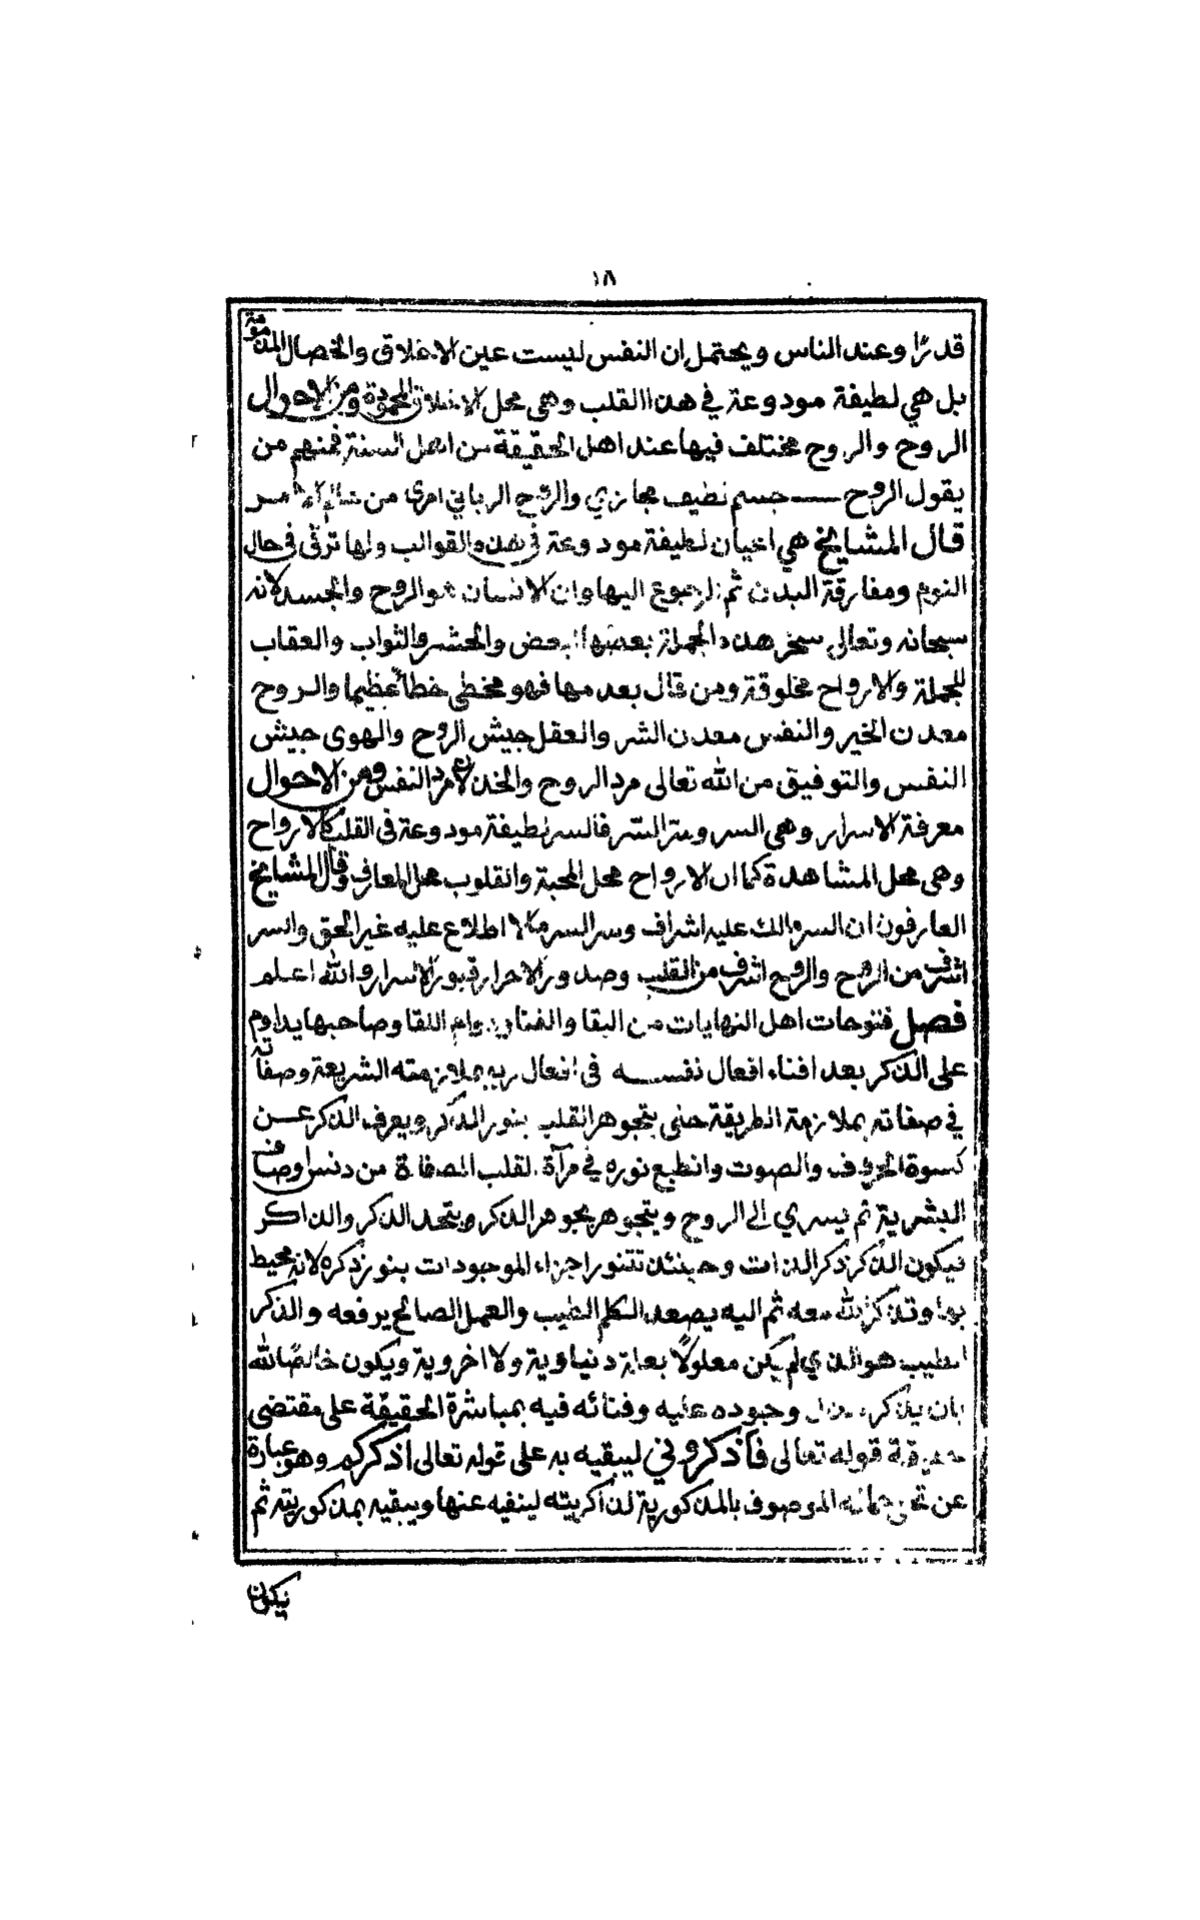 ١٨
قدرًا وعند الناس ويحتمل ان النفس ليست عين الاخلاق والخصال المذمومة
بل هي لطيفة مودوعة في هذا القلب وهي محل الاخلاق المحمودة ومن الاحوال
الروح والروح مختلف فيها عند اهل الحقيقة من اهل السنة فمنهم من
يقول الروح جسم لطيف مجازي والروح الرباني امري من عالم الامر
قال المشايخ هي اعيان لطيفة مودوعة في هذه القوالب ولها ترقى في حال
النوم ومفارقة البدن ثم الرجوع اليها وان الانسان هو الروح والجسد لانه
سبحانه وتعالى سخر هذه الجملة بعضها البعض والحشر والثواب والعقاب
للجملة والارواح مخلوقة ومن قال بعدمها فهو مخطى خطأ عظيما والروح
معدن الخير والنفس معدن الشر والعقل جيش الروح والهوى جيش
النفس والتوفيق من الله تعالى مرد الروح والخذلان مرد النفس ومن الاحوال
معرفة الاسرار وهي السر وسر السر فالسر لطيفة مودوعة في القلب كالارواح
وهي محل المشاهدة كما ان الارواح محل المحبة والقلوب محل المعارف وقال المشايخ
العارفون ان السر مالك عليه اشراف وسر السر مالا اطلاع عليه غير الحق والسر
اشرف من الروح والروح اشرف من القلب وصدور الاحرار قبور الاسرار والله اعلم
فصل فتوحات اهل النهايات من البقا والفنا ودوام اللقا وصاحبها يداوم
على الذكر بعد افناء افعال نفسه في افعال ربه بملازمته الشريعة وصفاته
في صفاته بملازمة الطريقة حتى يتجوهر القلب بنور الذكر ويعرف الذكر عن
كسوة الحروف والصوت وانطبع نوره في مرآة القلب المصفاة من دنس اوصاف
البشرية ثم يسري الى الروح ويتجوهر بجوهر الذكر ويتحد الذكر والذاكر
فيكون الذكر ذكر الذات وحينئذ تتنور اجزاء الموجودات بنور ذكره لانه محيط
بها وتذكر الله معه ثم اليه يصعد الكلم الطيب والعمل الصالح يرفعه والذكر
الطيب هو الذي لم يكن معلولًا بعلة دنياوية ولا اخروية ويكون خالصًا لله
بان يذكره وجوده عليه وفنائه فيه بمباشرة الحقيقة على مقتضى
حقيقة قوله تعالى فاذكروني ليبقيه به على قوله تعالى اذكركم وهو عبارة
عن تجلي جماله الموصوف بالمذكورية لذاكريته لينفيه عنها ويبقيه بمذكوريته ثم
يكون